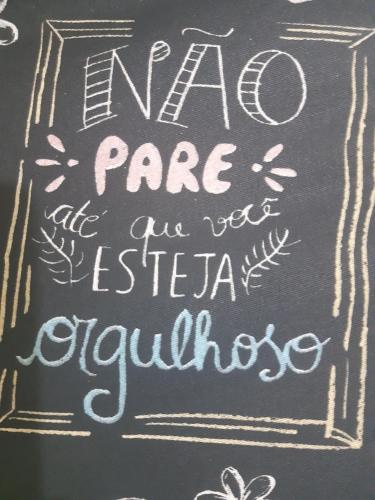 NÃO
PARE
até que você
ESTEJA
orgulhoso